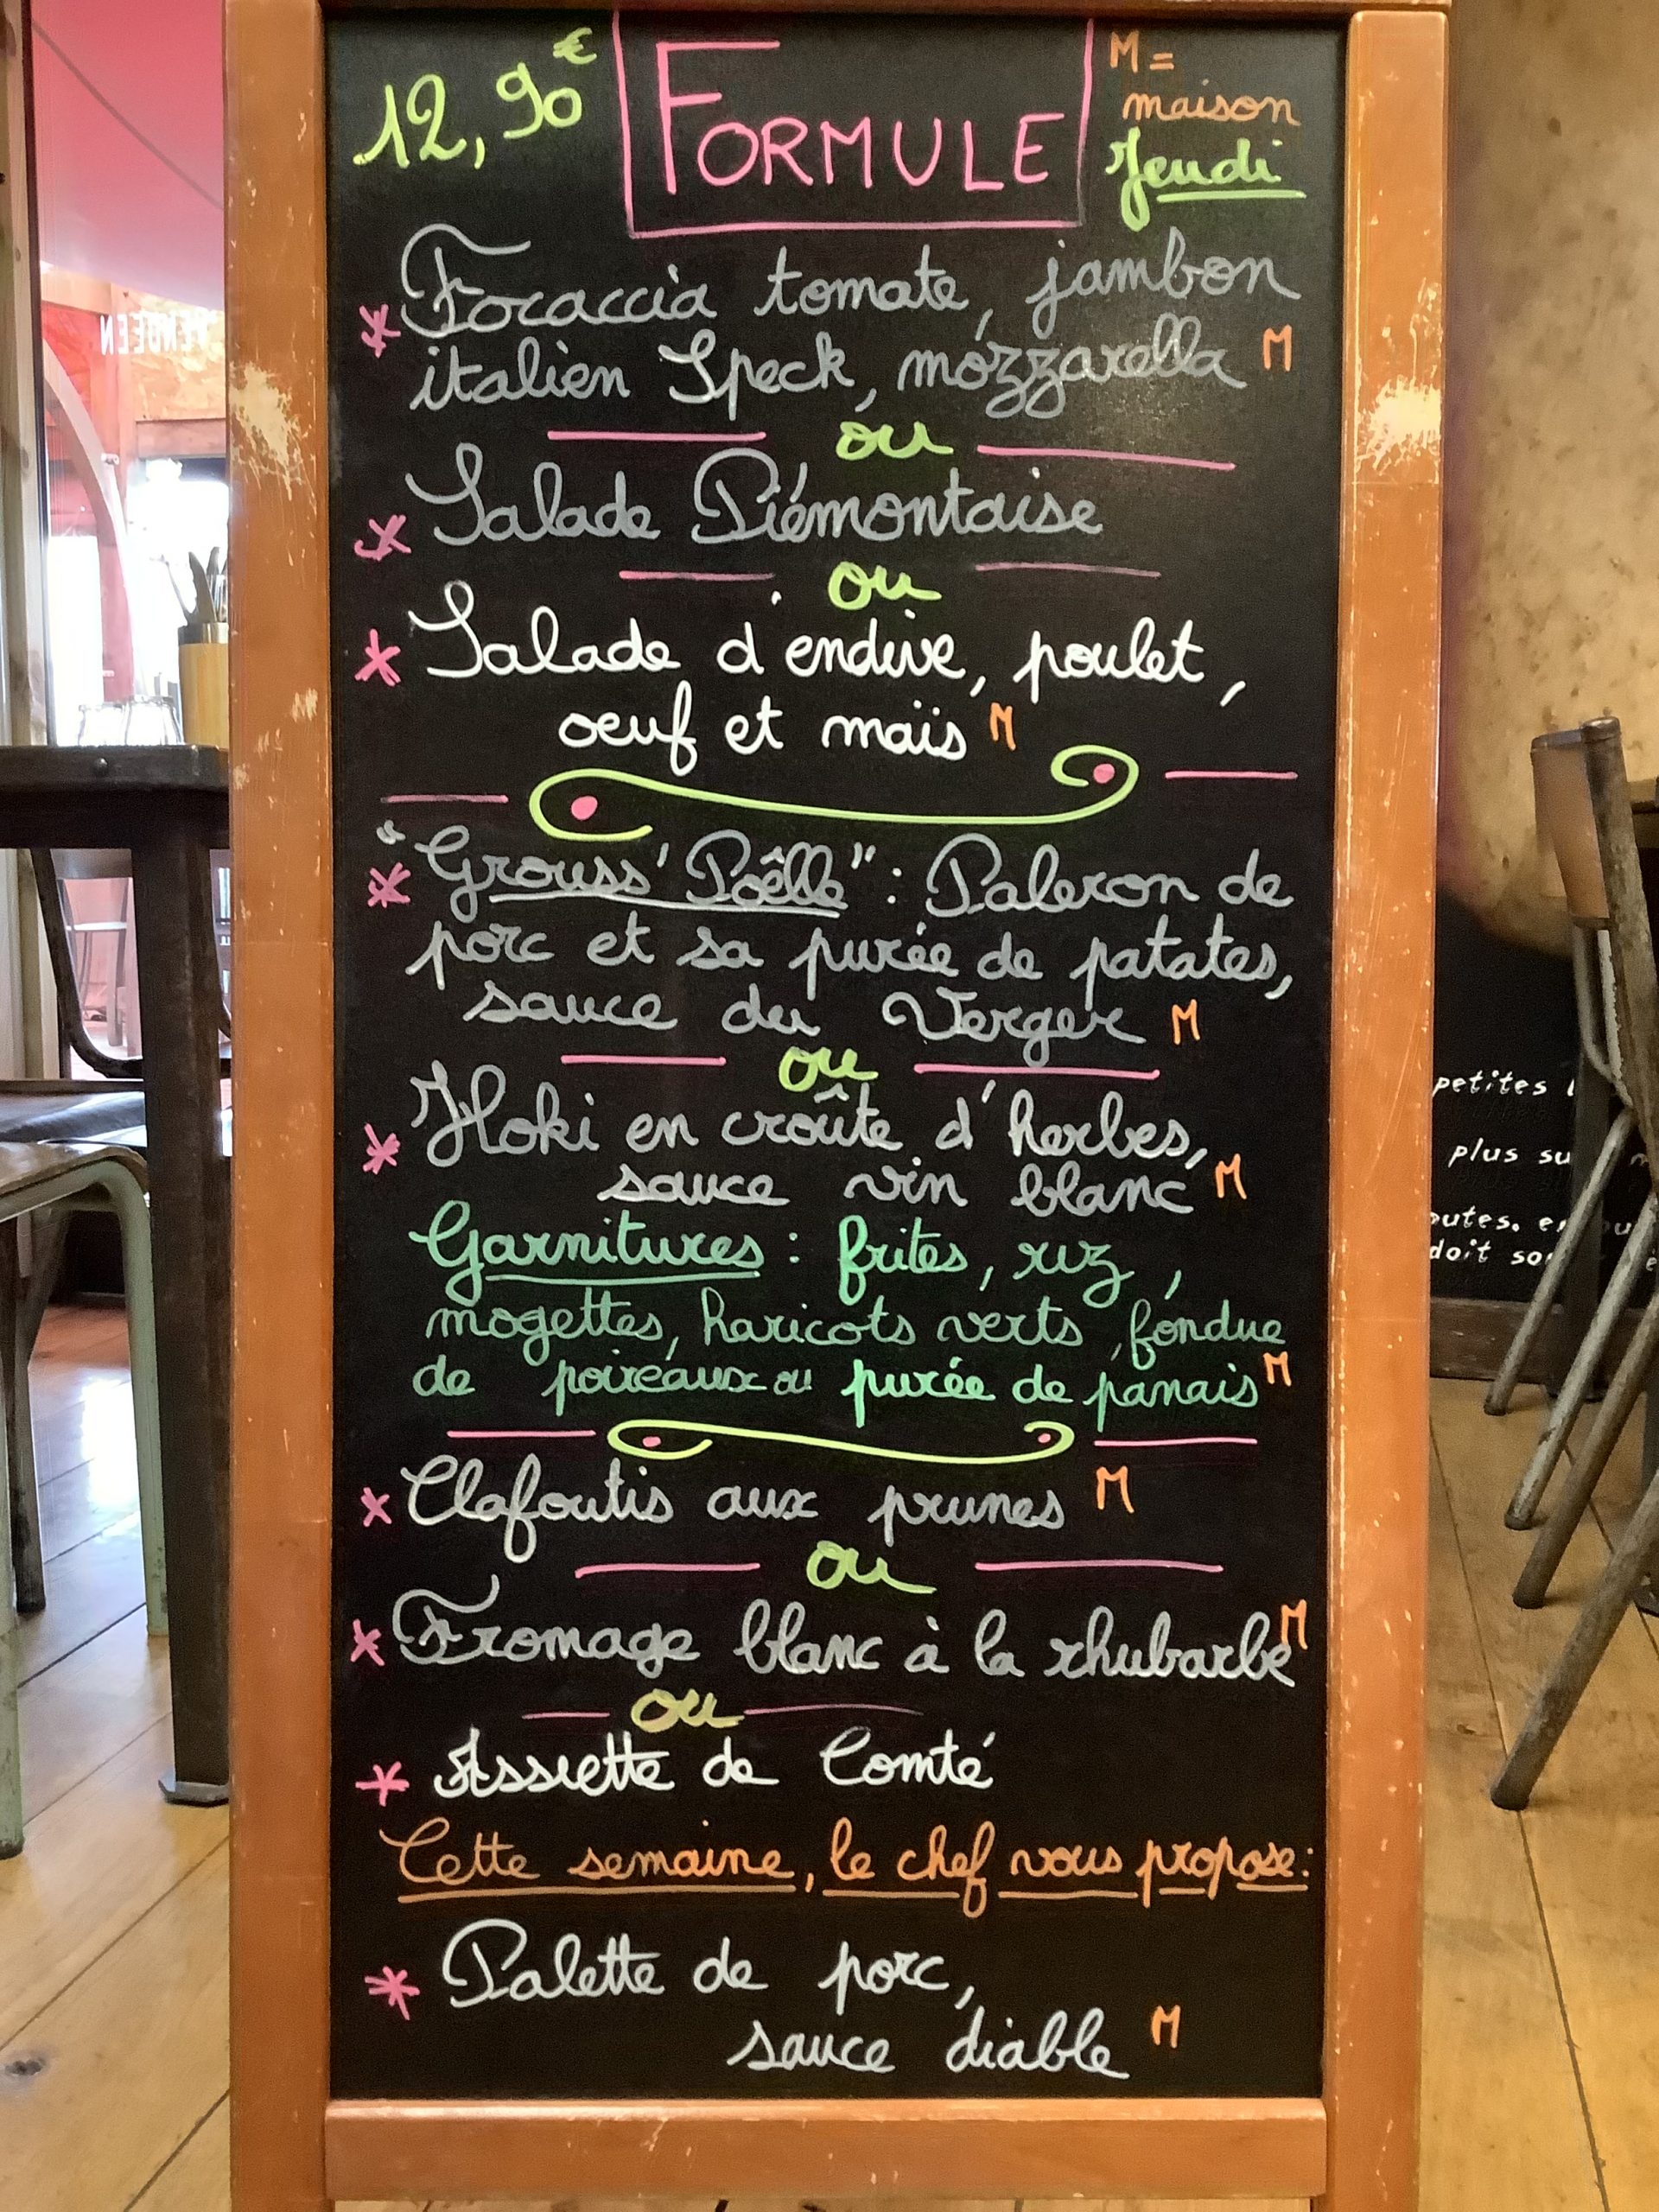 12,90€ FORMULE M =
maison
Jeudi
* Focaccia tomate, jambon
italien Speck, mozzarella M
ou
* Salade Piémontaise
ou
* Salade d'endive, poulet,
oeuf et maïs M
* "Grouss' Poêlle" : Paleron de
porc et sa purée de patates,
sauce du Verger M
ou
* Hoki en croûte d'herbes,
sauce vin blanc M
Garnitures : frites, riz,
mogettes, haricots verts, fondue
de poireaux ou purée de panais M
* Clafoutis aux prunes M
ou
* Fromage blanc à la rhubarbe M
ou
* Assiette de Comté
Cette semaine, le chef vous propose :
* Palette de porc,
sauce diable M
petites
plus su
doit